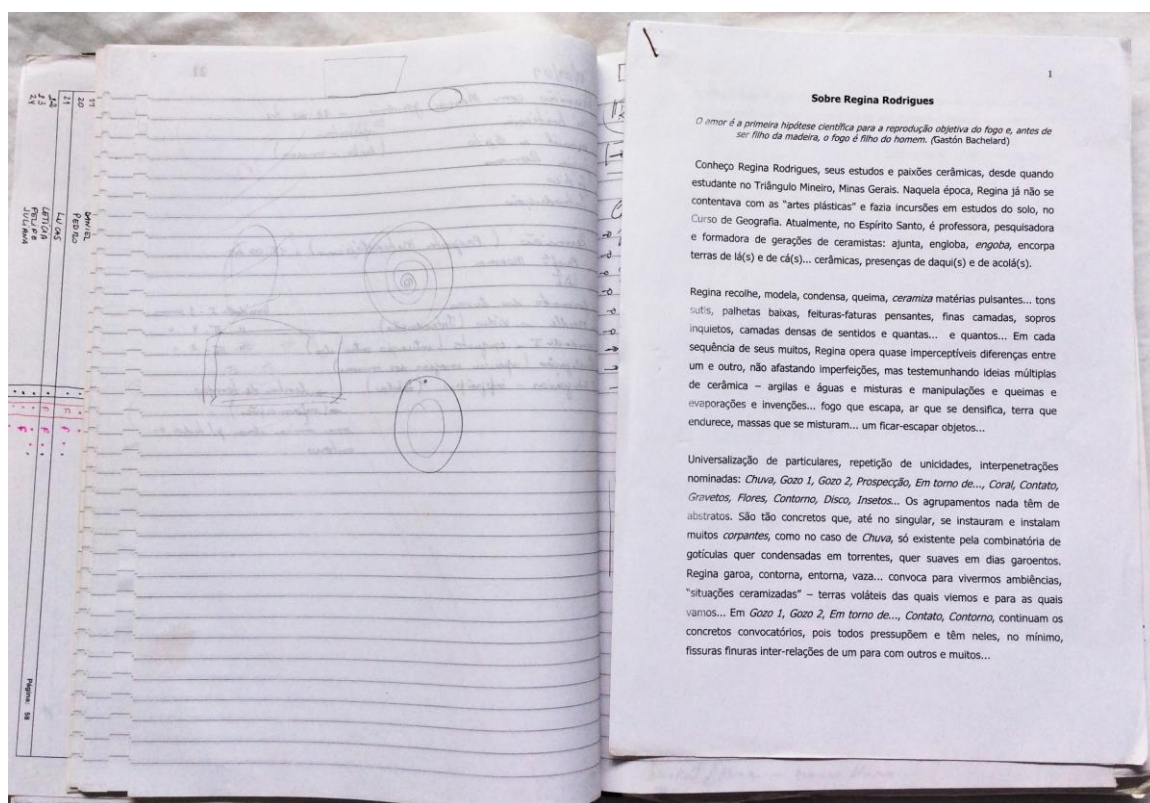 19
20
21
22
23
24
DANIEL
PEDRO
LUCAS
LETICIA
FELIPE
JULIANA
Página: 58
1
Sobre Regina Rodrigues
O amor é a primeira hipótese científica para a reprodução objetiva do fogo e, antes de
ser filho da madeira, o fogo é filho do homem. (Gastón Bachelard)
Conheço Regina Rodrigues, seus estudos e paixões cerâmicas, desde quando
estudante no Triângulo Mineiro, Minas Gerais. Naquela época, Regina já não se
contentava com as “artes plásticas” e fazia incursões em estudos do solo, no
Curso de Geografia. Atualmente, no Espírito Santo, é professora, pesquisadora
e formadora de gerações de ceramistas: ajunta, engloba, engoba, encorpa
terras de lá(s) e de cá(s)... cerâmicas, presenças de daqui(s) e de acolá(s).
Regina recolhe, modela, condensa, queima, ceramiza matérias pulsantes... tons
sutis, palhetas baixas, feituras-faturas pensantes, finas camadas, sopros
inquietos, camadas densas de sentidos e quantas... e quantos... Em cada
sequência de seus muitos, Regina opera quase imperceptíveis diferenças entre
um e outro, não afastando imperfeições, mas testemunhando ideias múltiplas
de cerâmica – argilas e águas e misturas e manipulações e queimas e
evaporações e invenções... fogo que escapa, ar que se densifica, terra que
endurece, massas que se misturam... um ficar-escapar objetos...
Universalização de particulares, repetição de unicidades, interpenetrações
nominadas: Chuva, Gozo 1, Gozo 2, Prospecção, Em torno de..., Coral, Contato,
Gravetos, Flores, Contorno, Disco, Insetos... Os agrupamentos nada têm de
abstratos. São tão concretos que, até no singular, se instauram e instalam
muitos corpantes, como no caso de Chuva, só existente pela combinatória de
gotículas quer condensadas em torrentes, quer suaves em dias garoentos.
Regina garoa, contorna, entorna, vaza... convoca para vivermos ambiências,
“situações ceramizadas” – terras voláteis das quais viemos e para as quais
vamos... Em Gozo 1, Gozo 2, Em torno de..., Contato, Contorno, continuam os
concretos convocatórios, pois todos pressupõem e têm neles, no mínimo,
fissuras finuras inter-relações de um para com outros e muitos...